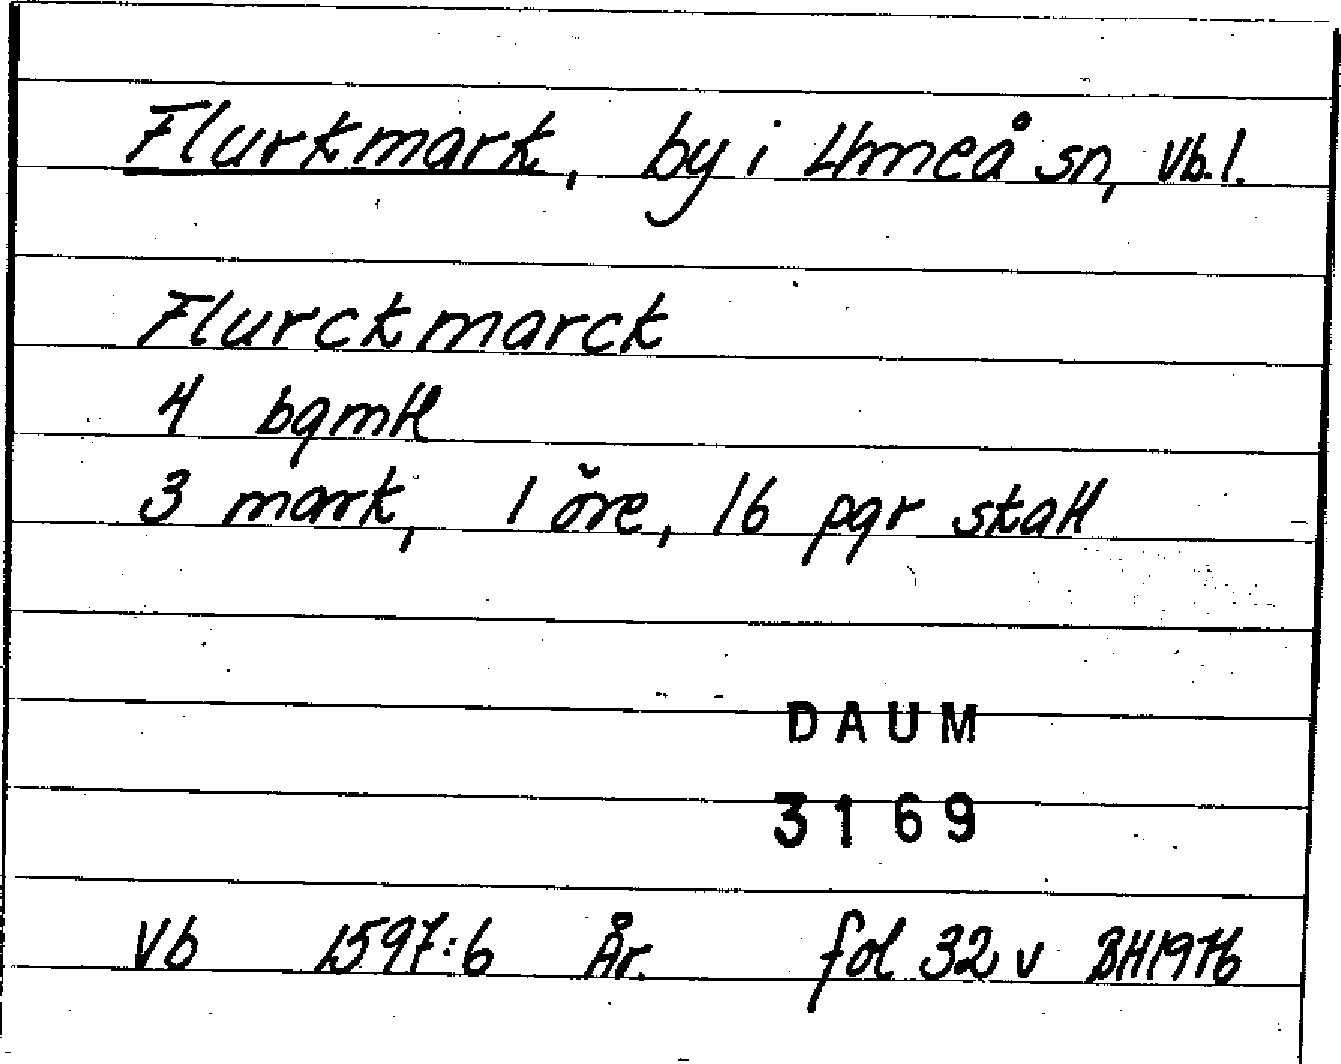 Flurkmark, by i Umeå sn, Vb. l.
Flurckmarck
4 bgmtl
3 mark, 1 öre, 16 pgr skatt
DAUM
3169
Vb 1597:6 År. fol 32 v BH1976